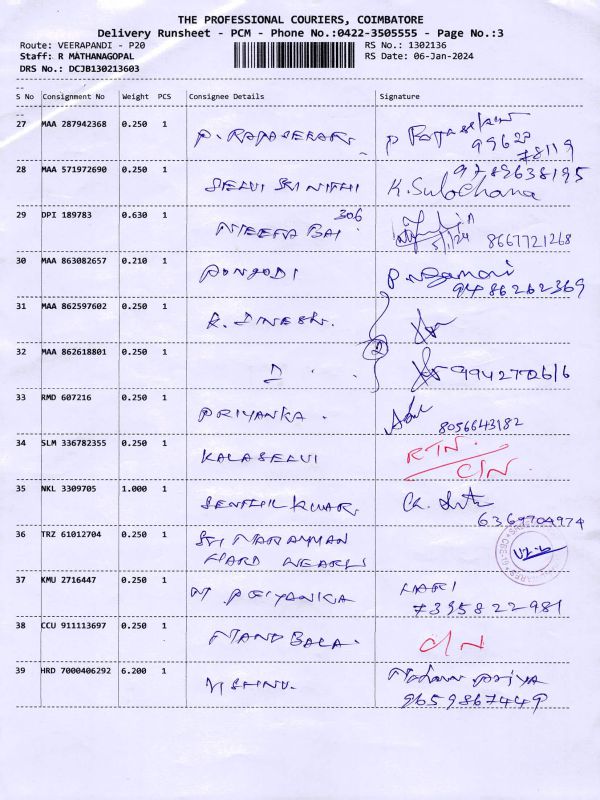 THE PROFESSIONAL COURIERS, COIMBATORE
Delivery Runsheet - PCM - Phone No.:0422-3505555 - Page No.:3
Route: VEERAPANDI - P20 RS No.: 1302136
Staff: R MATHANAGOPAL RS Date: 06-Jan-2024
DRS No.: DCJB130213603
S No Consignment No Weight PCS Consignee Details Signature
27 MAA 287942368 0.250 1 P. RAJASEKAR. P Rajasekar
99620
78119
28 MAA 571972690 0.250 1 SELVI SRI NITHI 9789638195
K. Sulochana
29 DPI 189783 0.630 1 NEETA BAI 306
5/1/24 8667721268
30 MAA 863082657 0.210 1 PONGODI
9486262369
31 MAA 862597602 0.250 1 R. DINESH.
2
32 MAA 862618801 0.250 1 D 9942770616
33 RMD 607216 0.250 1 PRIYANKA.
8056643182
34 SLM 336782355 0.250 1 KALASELVI RTN.
C/N.
35 NKL 3309705 1.000 1 SENTHIL KUMAR.
6369704974
36 TRZ 61012704 0.250 1 SRI NARAYANAN
HARD WEARES
37 KMU 2716447 0.250 1 M PRIYANKA HARI
7395822981
38 CCU 911113697 0.250 1 NAND BALA. C/N
39 HRD 7000406292 6.200 1 VISHNU. priya
9659867449